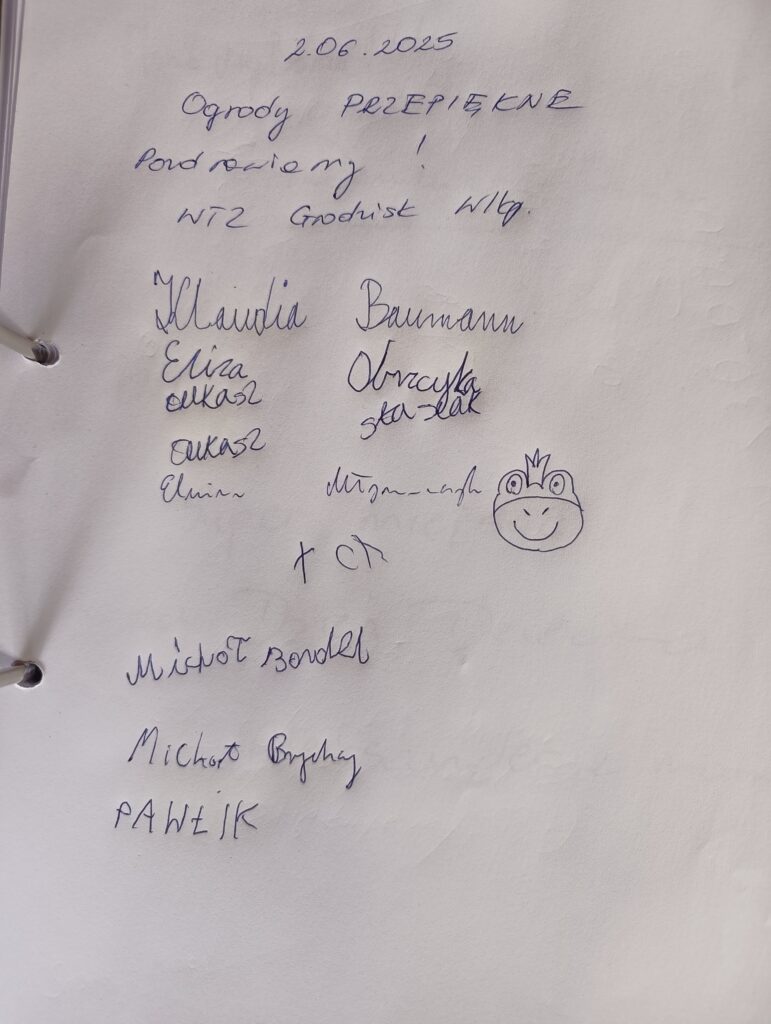 2.06.2025
Ogrody PRZEPIĘKNE
Pozdrawiamy !
WTZ Grodzisk Wlkp.
Klaudia Baumann
Eliza Obrzcyka
Łukasz
Łukasz
Michał
Michał Brychcy
PAWŁIK